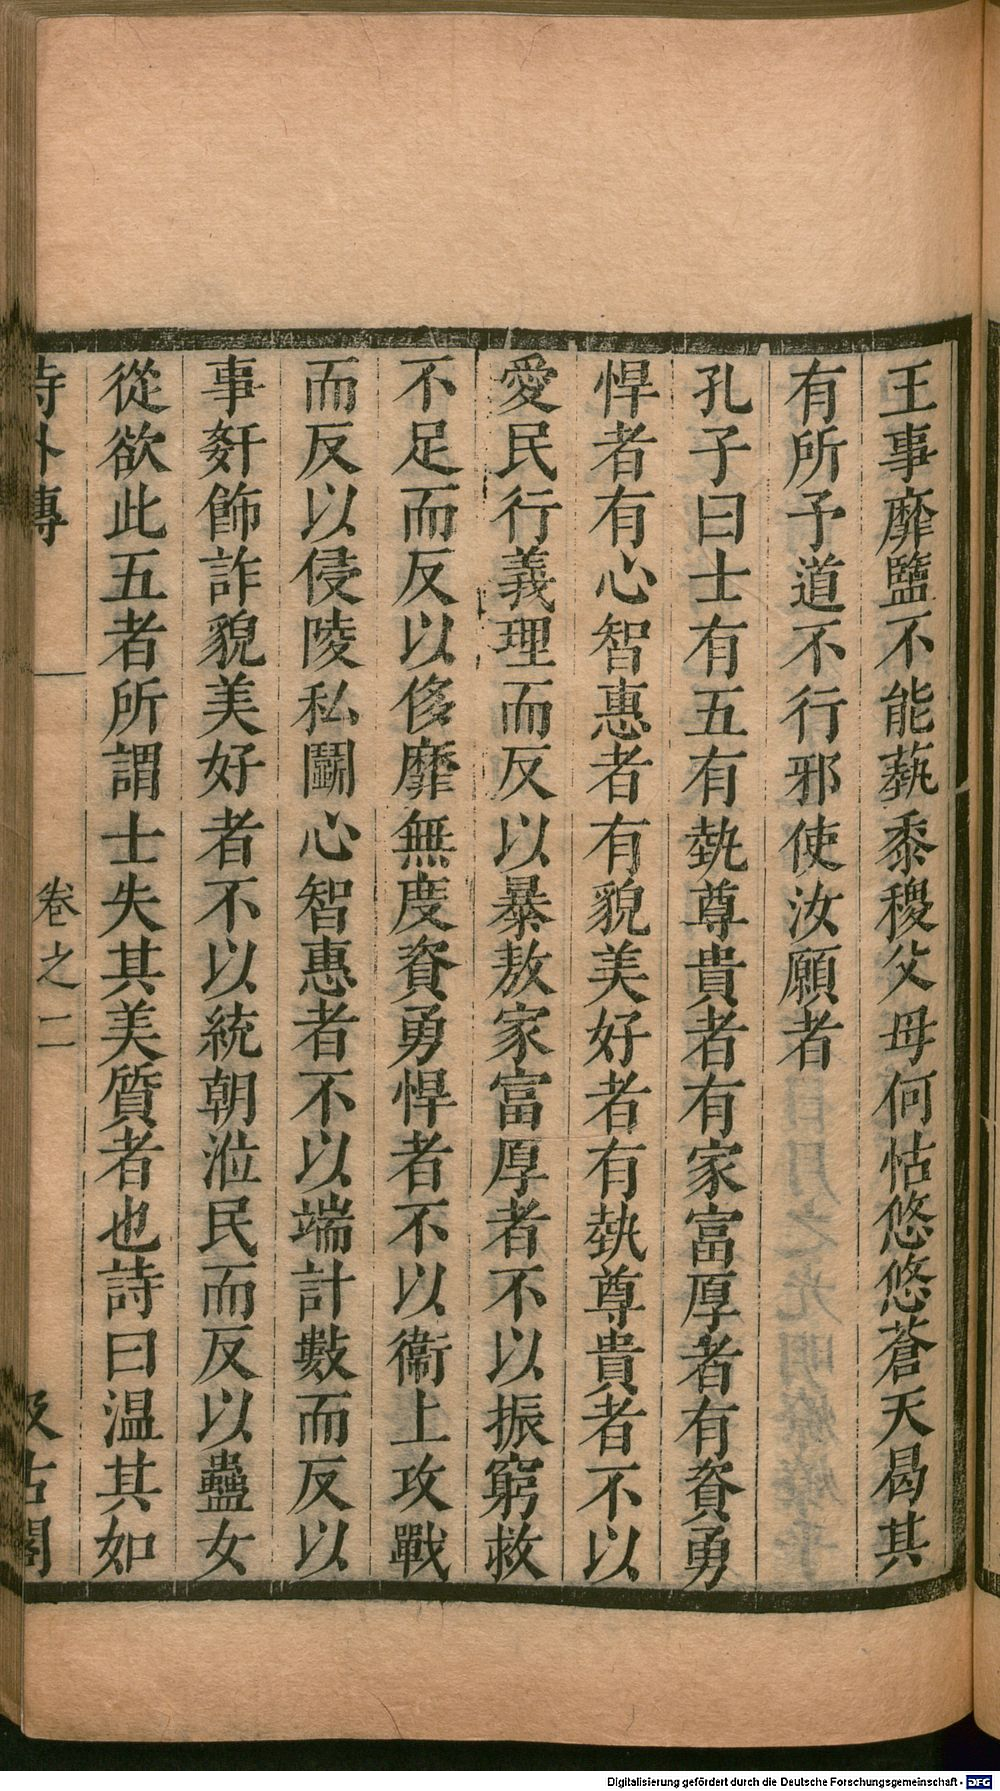 王事靡盬不能蓺黍稷父母何怙悠悠蒼天曷其
有所予道不行邪使汝願者
孔子曰士有五有埶尊貴者有家富厚者有資勇
悍者有心智惠者有貌美好者有埶尊貴者不以
愛民行義理而反以暴敖家富厚者不以振窮救
不足而反以侈靡無度資勇悍者不以衞上攻戰
而反以侵陵私鬭心智惠者不以端計數而反以
事姧飾詐貌美好者不以統朝涖民而反以蠱女
從欲此五者所謂士失其美質者也詩曰温其如
詩外傳 卷之二 汲古閣
Digitalisierung gefördert durch die Deutsche Forschungsgemeinschaft - DFG